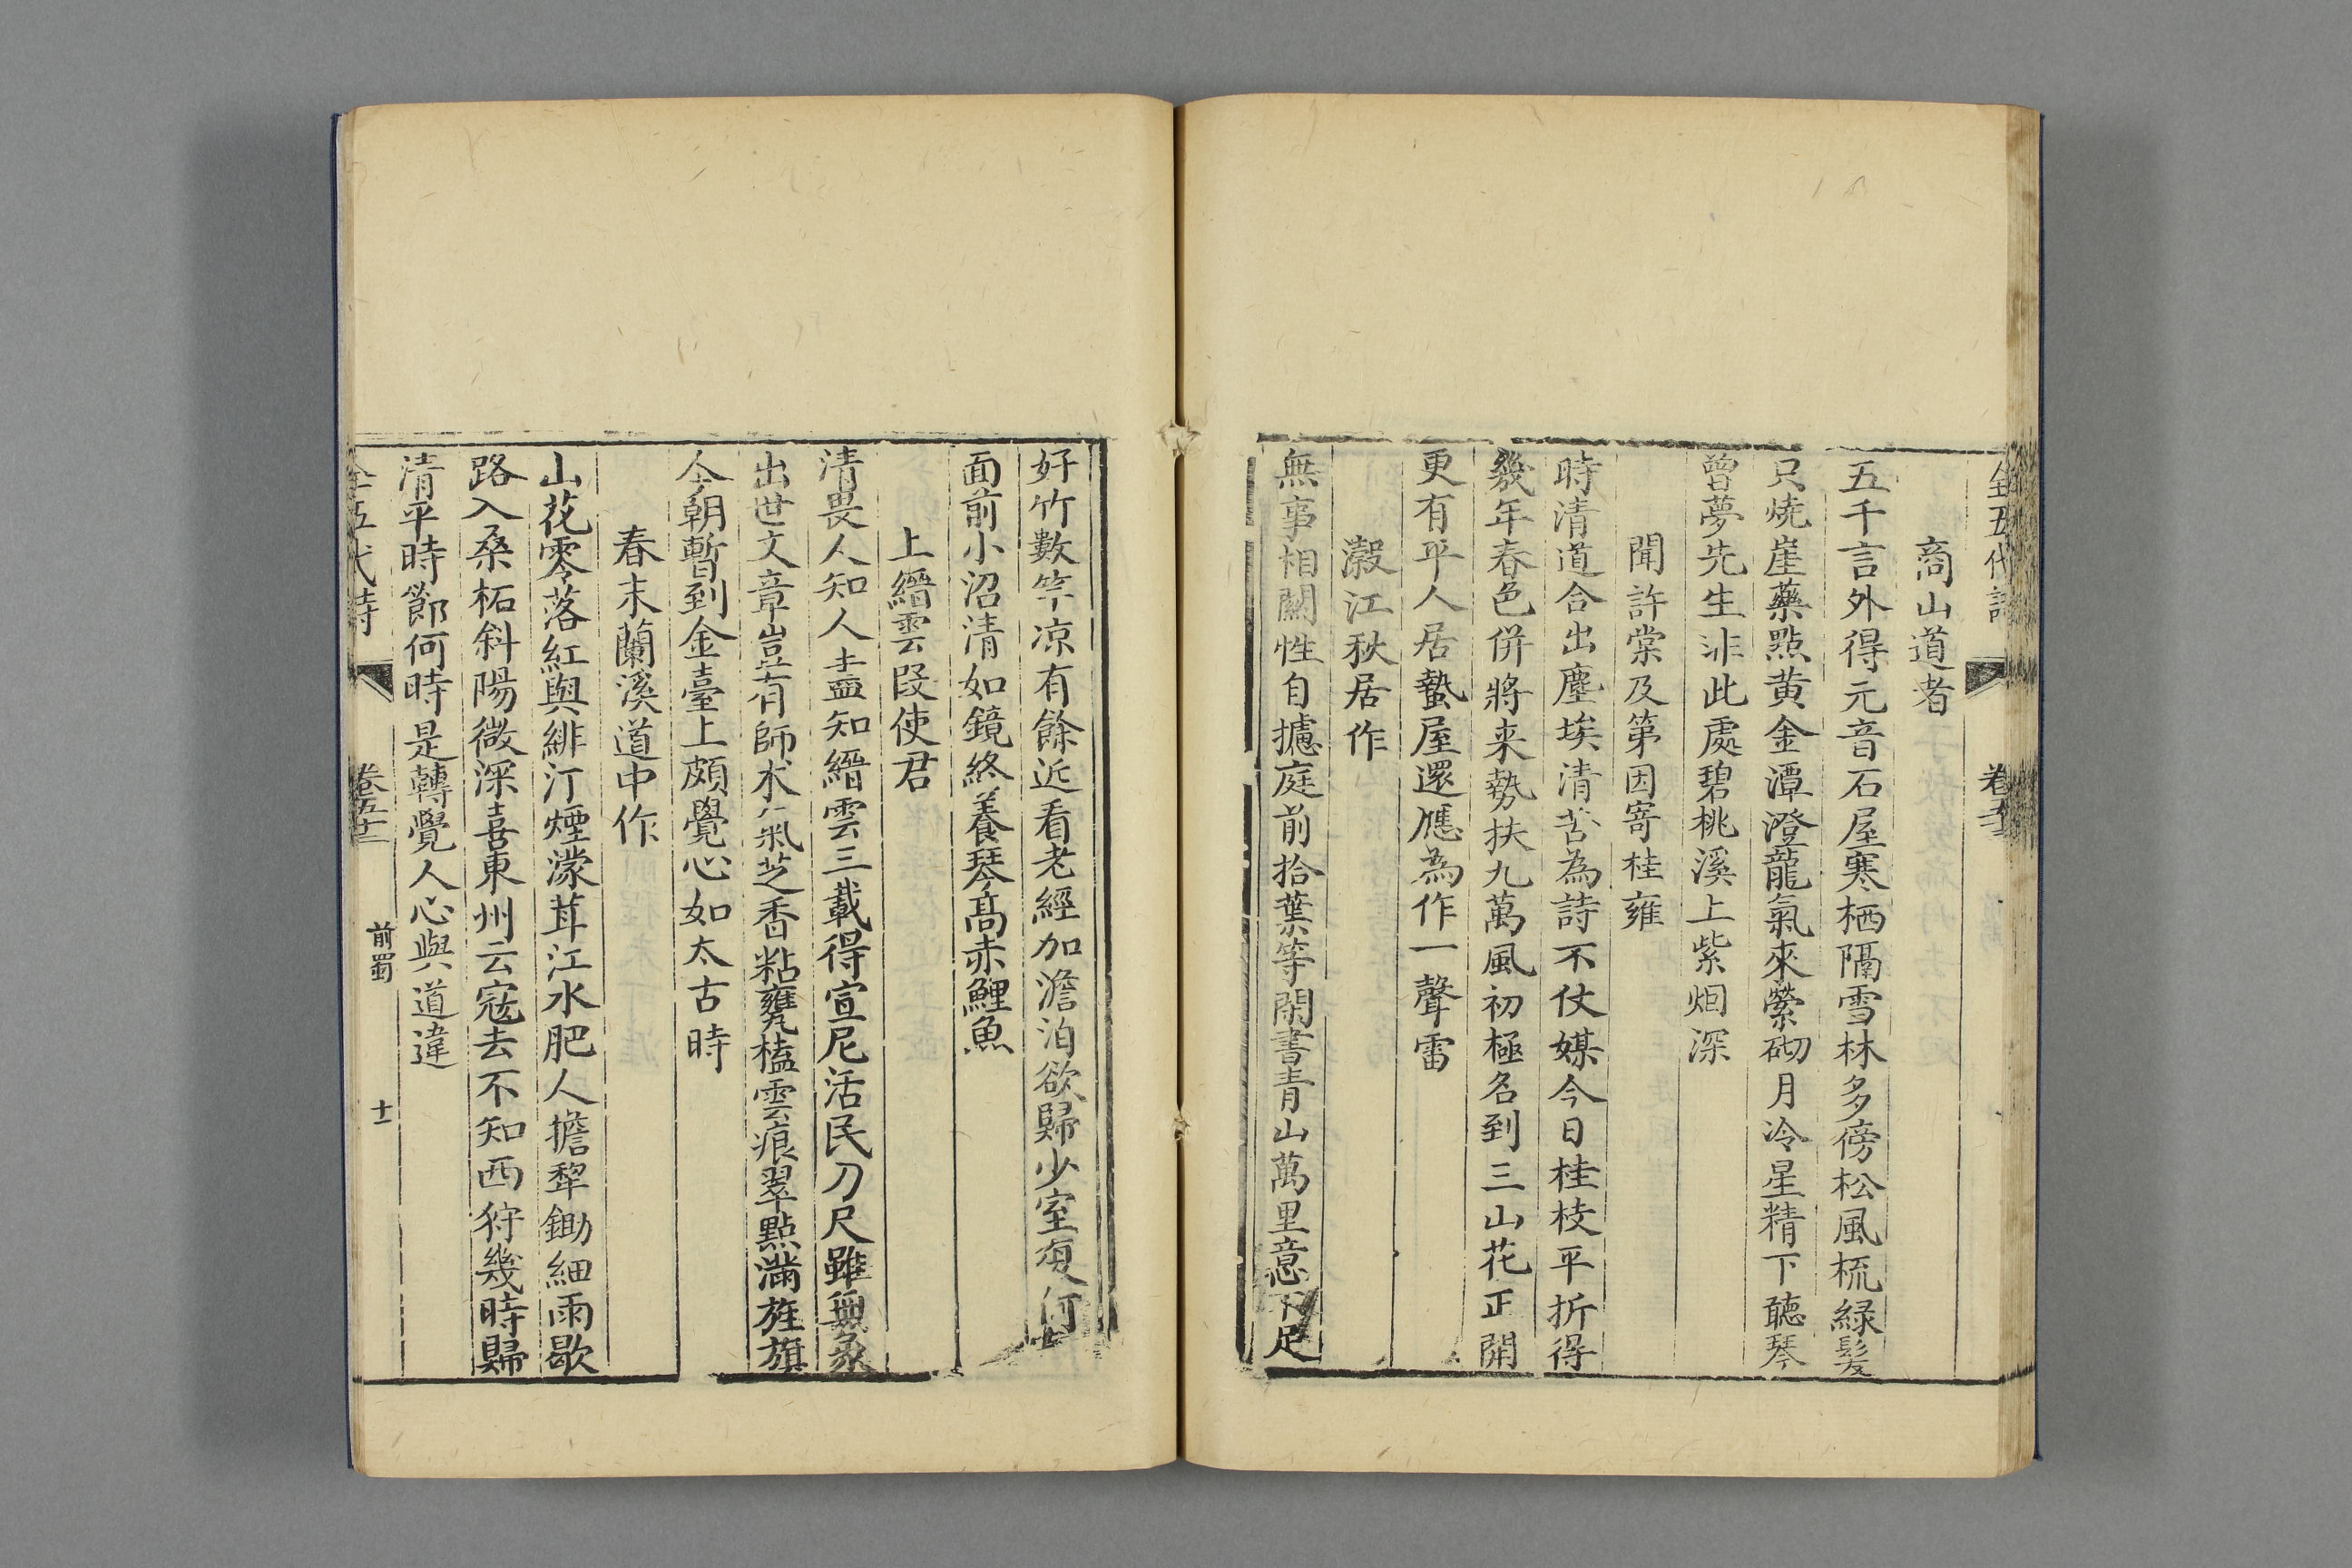 全五代詩 卷五十
商山道者
五千言外得元音石屋寒栖隔雪林多傍松風梳緑髪
只燒崖藥點黄金潭澄龍氣來縈砌月冷星精下聽琴
曾夢先生非此處碧桃溪上紫烟深
聞許棠及第因寄桂雍
時清道合出塵埃清苦為詩不仗媒今日桂枝平折得
幾年春色併將来勢扶九萬風初極名到三山花正開
更有平人居蟄屋還應為作一聲雷
瀫江秋居作
無事相關性自攄庭前拾葉等閑書青山萬里意不足
好竹數竿凉有餘近看老經加澹泊欲歸少室復何
面前小沼清如鏡終養琴髙赤鯉魚
上縉雲段使君
清畏人知人盡知縉雲三載得宣尼活民刀尺雖無象
出世文章豈有師术氣芝香粘甕榼雲痕翠點滿旌旗
今朝暫到金臺上頗覺心如太古時
春末蘭溪道中作
山花零落紅與緋汀煙濛茸江水肥人擔犂鋤細雨歇
路入桑柘斜陽微深喜東州云寇去不知西狩幾時歸
清平時節何時是轉覺人心與道違
全五代詩 卷五十 前蜀 十一